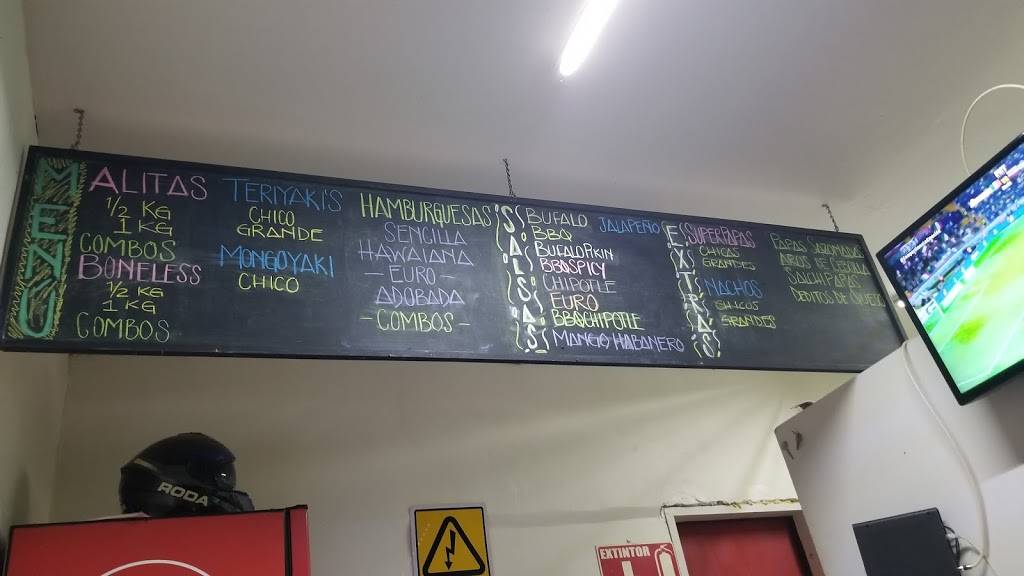 MENU
ALITAS
1/2 KG
1 KG
COMBOS
BONELESS
1/2 KG
1 KG
COMBOS
TERIYAKIS
CHICO
GRANDE
MONGOYAKI
CHICO
HAMBURGUESAS
SENCILLA
HAWAIANA
- EURO -
ADOBADA
- COMBOS -
SALSAS
BUFALO
JALAPEÑO
BBQ
BUFALO PKIN
BBQ SPICY
CHIPOTLE
EURO
BBQ CHIPOTLE
MANGO HABANERO
EXTRAS
SUPERPAPAS
CHICAS
GRANDES
NACHOS
CHICOS
GRANDES
PAPAS SAZONADAS
AROS DE CEBOLLA
SALCHIPAPAS
DEDITOS DE QUESO
RODA
EXTINTOR